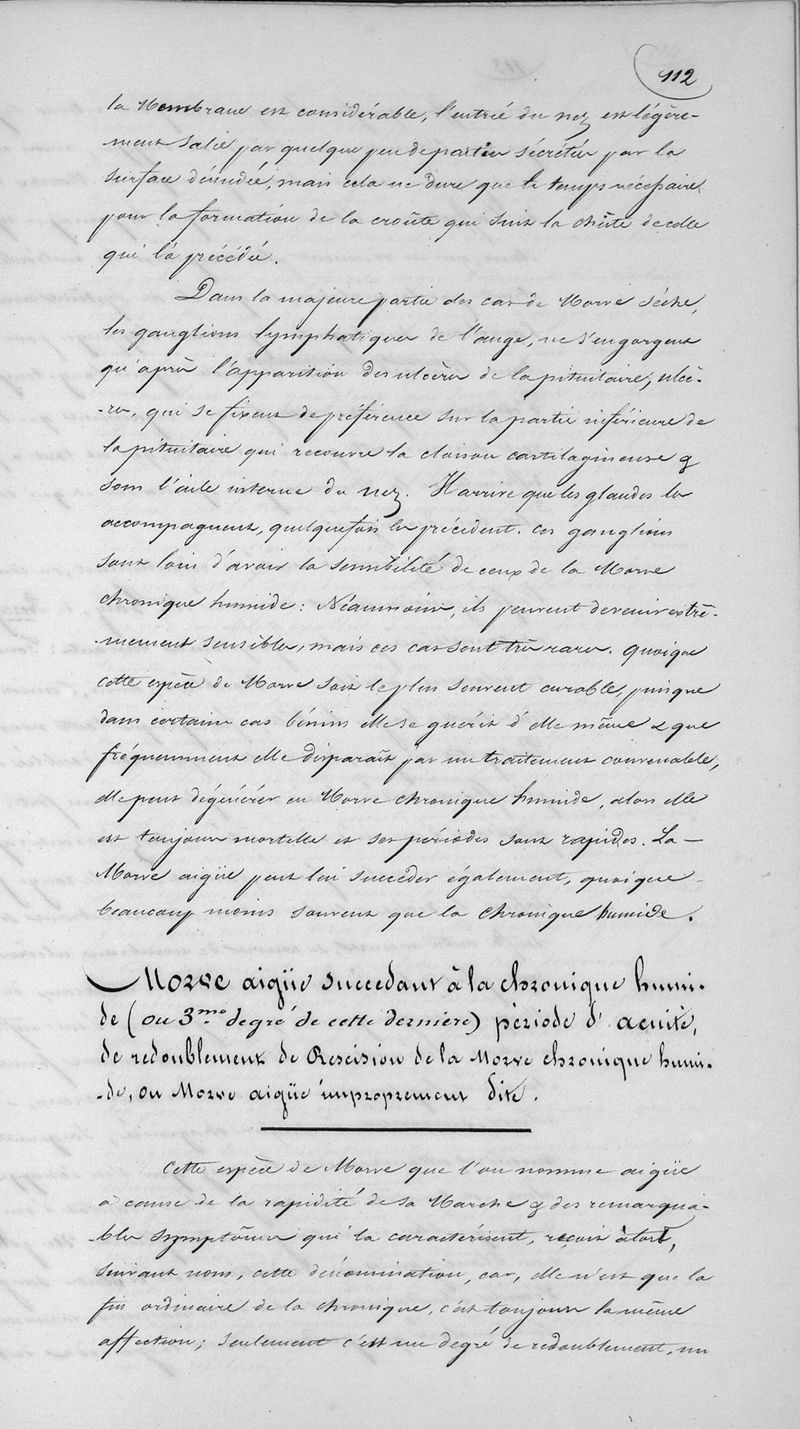 112
la Membrane est considérable, l'entrée du nez est légère-
-ment salie par quelque peu de parties sécrétées par la
surface dénudée, mais cela ne dure que le temps nécessaire
pour la formation de la croûte qui suit la chûte de celle
qui l'a précédée.
Dans la majeure partie des cas de Morve sèche,
les ganglions lymphatiques de l'auge, ne s'engorgent
qu'après l'apparition des ulcères de la pituitaire; ulcè-
-res, qui se fixent de préférence sur la partie inférieure de
la pituitaire qui recouvre la cloison cartilagineuse &
sous l'aile interne du nez. Il arrive que les glandes les
accompagnent, quelquefois les précèdent. Ces ganglions
sont loin d'avoir la sensibilité de ceux de la Morve
chronique humide: Néanmoins, ils peuvent devenir extrê-
-mement sensibles, mais ces cas sont très rares. Quoique
cette espèce de Morve soit le plus souvent curable, puisque
dans certains cas bénins elle se guérit d'elle même & que
fréquemment elle disparaît par un traitement convenable,
elle peut dégénérer en Morve chronique humide, alors elle
est toujours mortelle et ses périodes sont rapides. La
Morve aigüe peut lui succéder également, quoique
beaucoup moins souvent que la chronique humide.
Morve aigüe succedant à la chronique humi-
de (ou 3.me degré de cette dernière) période d'acuité,
de redoublement de Rescision de la Morve chronique humi-
-de, ou Morve aigüe improprement dite.
Cette espèce de Morve que l'on nomme aigüe
à cause de la rapidité de sa Marche & des remarqua-
-bles symptômes qui la caractérisent, reçoit à tort,
suivant nous, cette dénomination, car, elle n'est que la
fin ordinaire de la chronique, c'est toujours la même
affection; seulement c'est un degré de redoublement, un